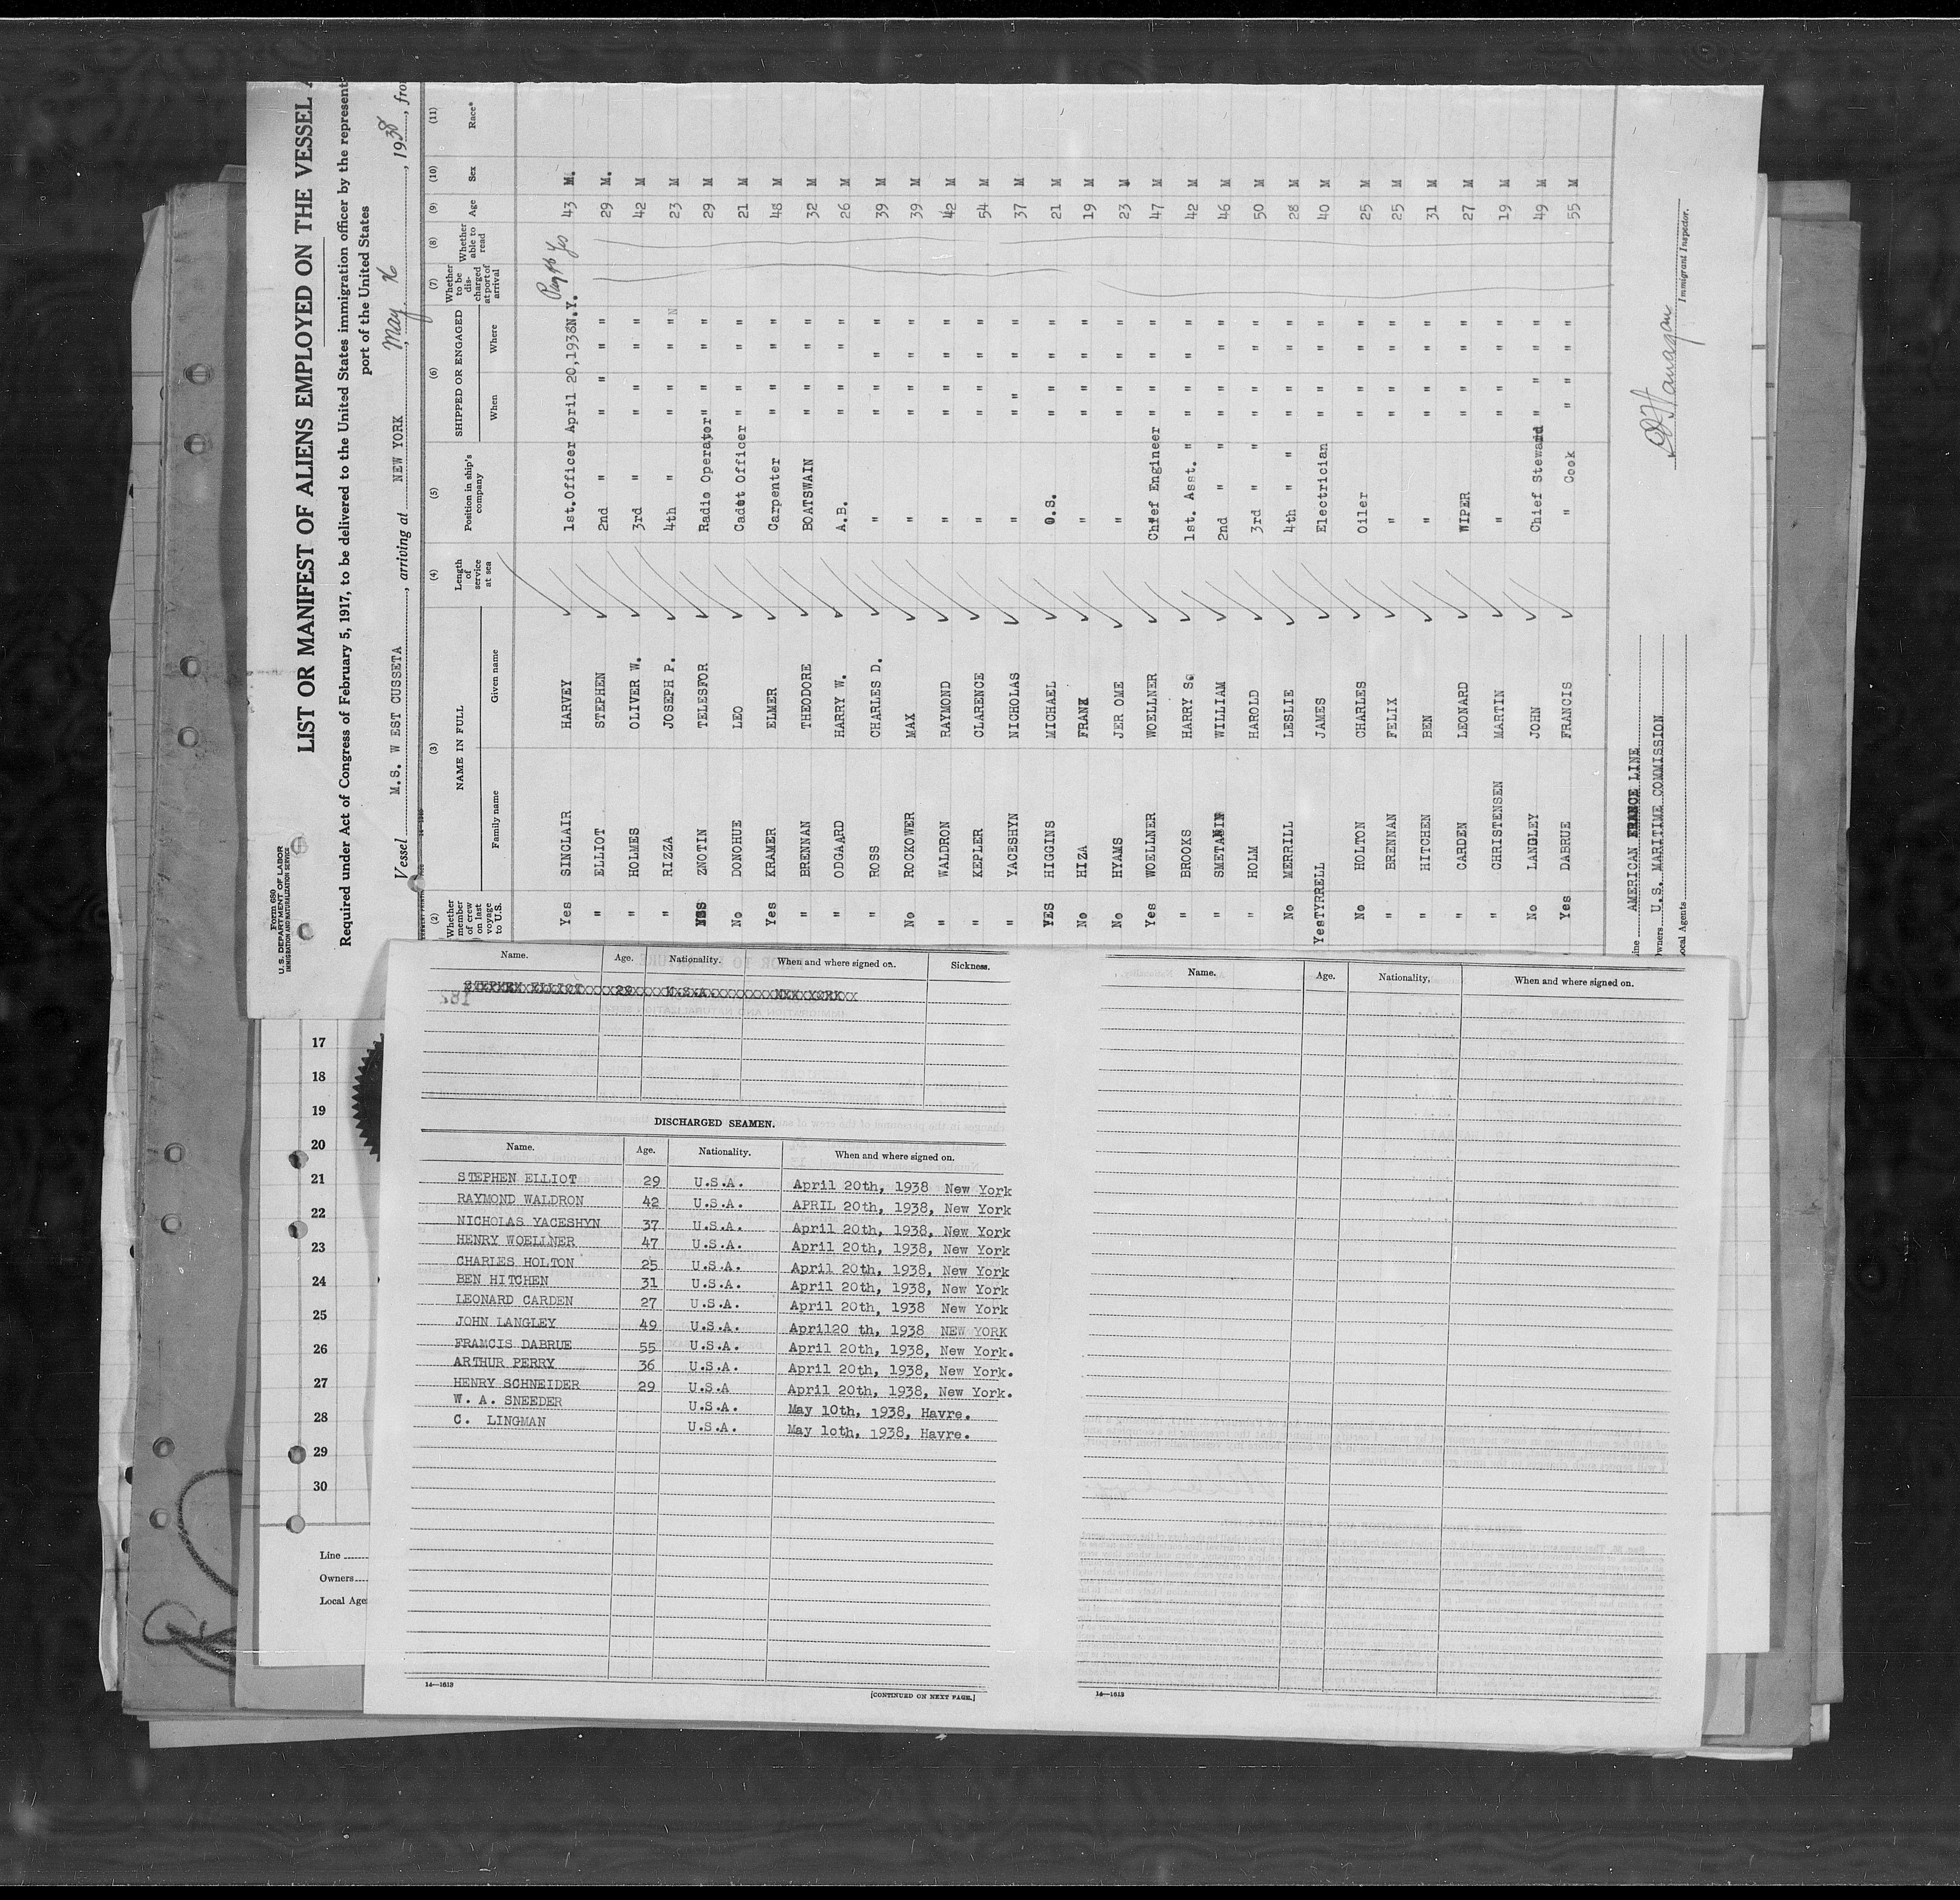 Form 680
U. S. DEPARTMENT OF LABOR
IMMIGRATION AND NATURALIZATION SERVICE
LIST OR MANIFEST OF ALIENS EMPLOYED ON THE VESSEL
Required under Act of Congress of February 5, 1917, to be delivered to the United States immigration officer by the represent
port of the United States
Vessel M.S. W EST CUSSETA, arriving at NEW YORK, May 16, 1938, fro
(2) (3) (4) (5) (6) (7) (8) (9) (10) (11)
Whether member of crew on last voyage to U.S. NAME IN FULL Length of service at sea Position in ship's company SHIPPED OR ENGAGED Whether to be discharged at port of arrival Whether able to read Age Sex Race*
Family name Given name When Where
Yes SINCLAIR HARVEY 1st.Officer April 20,1938 N.Y. Yes 43 M.
" ELLIOT STEPHEN 2nd " " " " " 29 M.
" HOLMES OLIVER W. 3rd " " " " " 42 M
" RIZZA JOSEPH P. 4th " " " " " 23 M
YES ZNOTIN TELESFOR Radio Operator " " " " 29 M
No DONOHUE LEO Cadet Officer " " " " 21 M
Yes KRAMER ELMER Carpenter " " " " 48 M
" BRENNAN THEODORE BOATSWAIN " " " " 32 M
" ODGAARD HARRY W. A.B. " " " " 26 M
" ROSS CHARLES D. " " " " " 39 M
No ROCKOWER MAX " " " " " 39 M
" WALDRON RAYMOND " " " " " 42 M
" KEPLER CLARENCE " " " " " 54 M
" YACESHYN NICHOLAS " " " " " 37 M
YES HIGGINS MICHAEL O.S. " " " " 21 M
No HIZA FRANK " " " " " 19 M
No HYAMS JER OME " " " " " 23 M
Yes WOELLNER WOELLNER Chief Engineer " " " " 47 M
" BROOKS HARRY S. 1st. Asst. " " " " " 42 M
" SMETANIN WILLIAM 2nd " " " " " " 46 M
" HOLM HAROLD 3rd " " " " " " 50 M
No MERRILL LESLIE 4th " " " " " " 28 M
Yes TYRRELL JAMES Electrician " " " " 40 M
No HOLTON CHARLES Oiler " " " " 25 M
" BRENNAN FELIX " " " " " 25 M
" HITCHEN BEN " " " " " 31 M
" CARDEN LEONARD WIPER " " " " 27 M
" CHRISTENSEN MARTIN " " " " " 19 M
No LANGLEY JOHN Chief Steward " " " " 49 M
Yes DABRUE FRANCIS " Cook " " " " 55 M
ine AMERICAN FRANCE LINE
wners U.S. MARITIME COMMISSION
ocal Agents
Immigrant Inspector.
Name. Age. Nationality. When and where signed on. Sickness.
STEPHEN ELLIOT 29 U.S.A. NEW YORK
DISCHARGED SEAMEN.
Name. Age. Nationality. When and where signed on.
STEPHEN ELLIOT 29 U.S.A. April 20th, 1938 New York
RAYMOND WALDRON 42 U.S.A. APRIL 20th, 1938, New York
NICHOLAS YACESHYN 37 U.S.A. April 20th, 1938, New York
HENRY WOELLNER 47 U.S.A. April 20th, 1938, New York
CHARLES HOLTON 25 U.S.A. April 20th, 1938, New York
BEN HITCHEN 31 U.S.A. April 20th, 1938, New York
LEONARD CARDEN 27 U.S.A. April 20th, 1938 New York
JOHN LANGLEY 49 U.S.A. April20 th, 1938 NEW YORK
FRAMCIS DABRUE 55 U.S.A. April 20th, 1938, New York.
ARTHUR PERRY 36 U.S.A. April 20th, 1938, New York.
HENRY SCHNEIDER 29 U.S.A April 20th, 1938, New York.
W. A. SNEEDER U.S.A. May 10th, 1938, Havre.
C. LINGMAN U.S.A. May 1oth, 1938, Havre.
14—1613
[CONTINUED ON NEXT PAGE.]
Name. Age. Nationality. When and where signed on.
14—1613
17
18
19
20
21
22
23
24
25
26
27
28
29
30
Line
Owners
Local Age